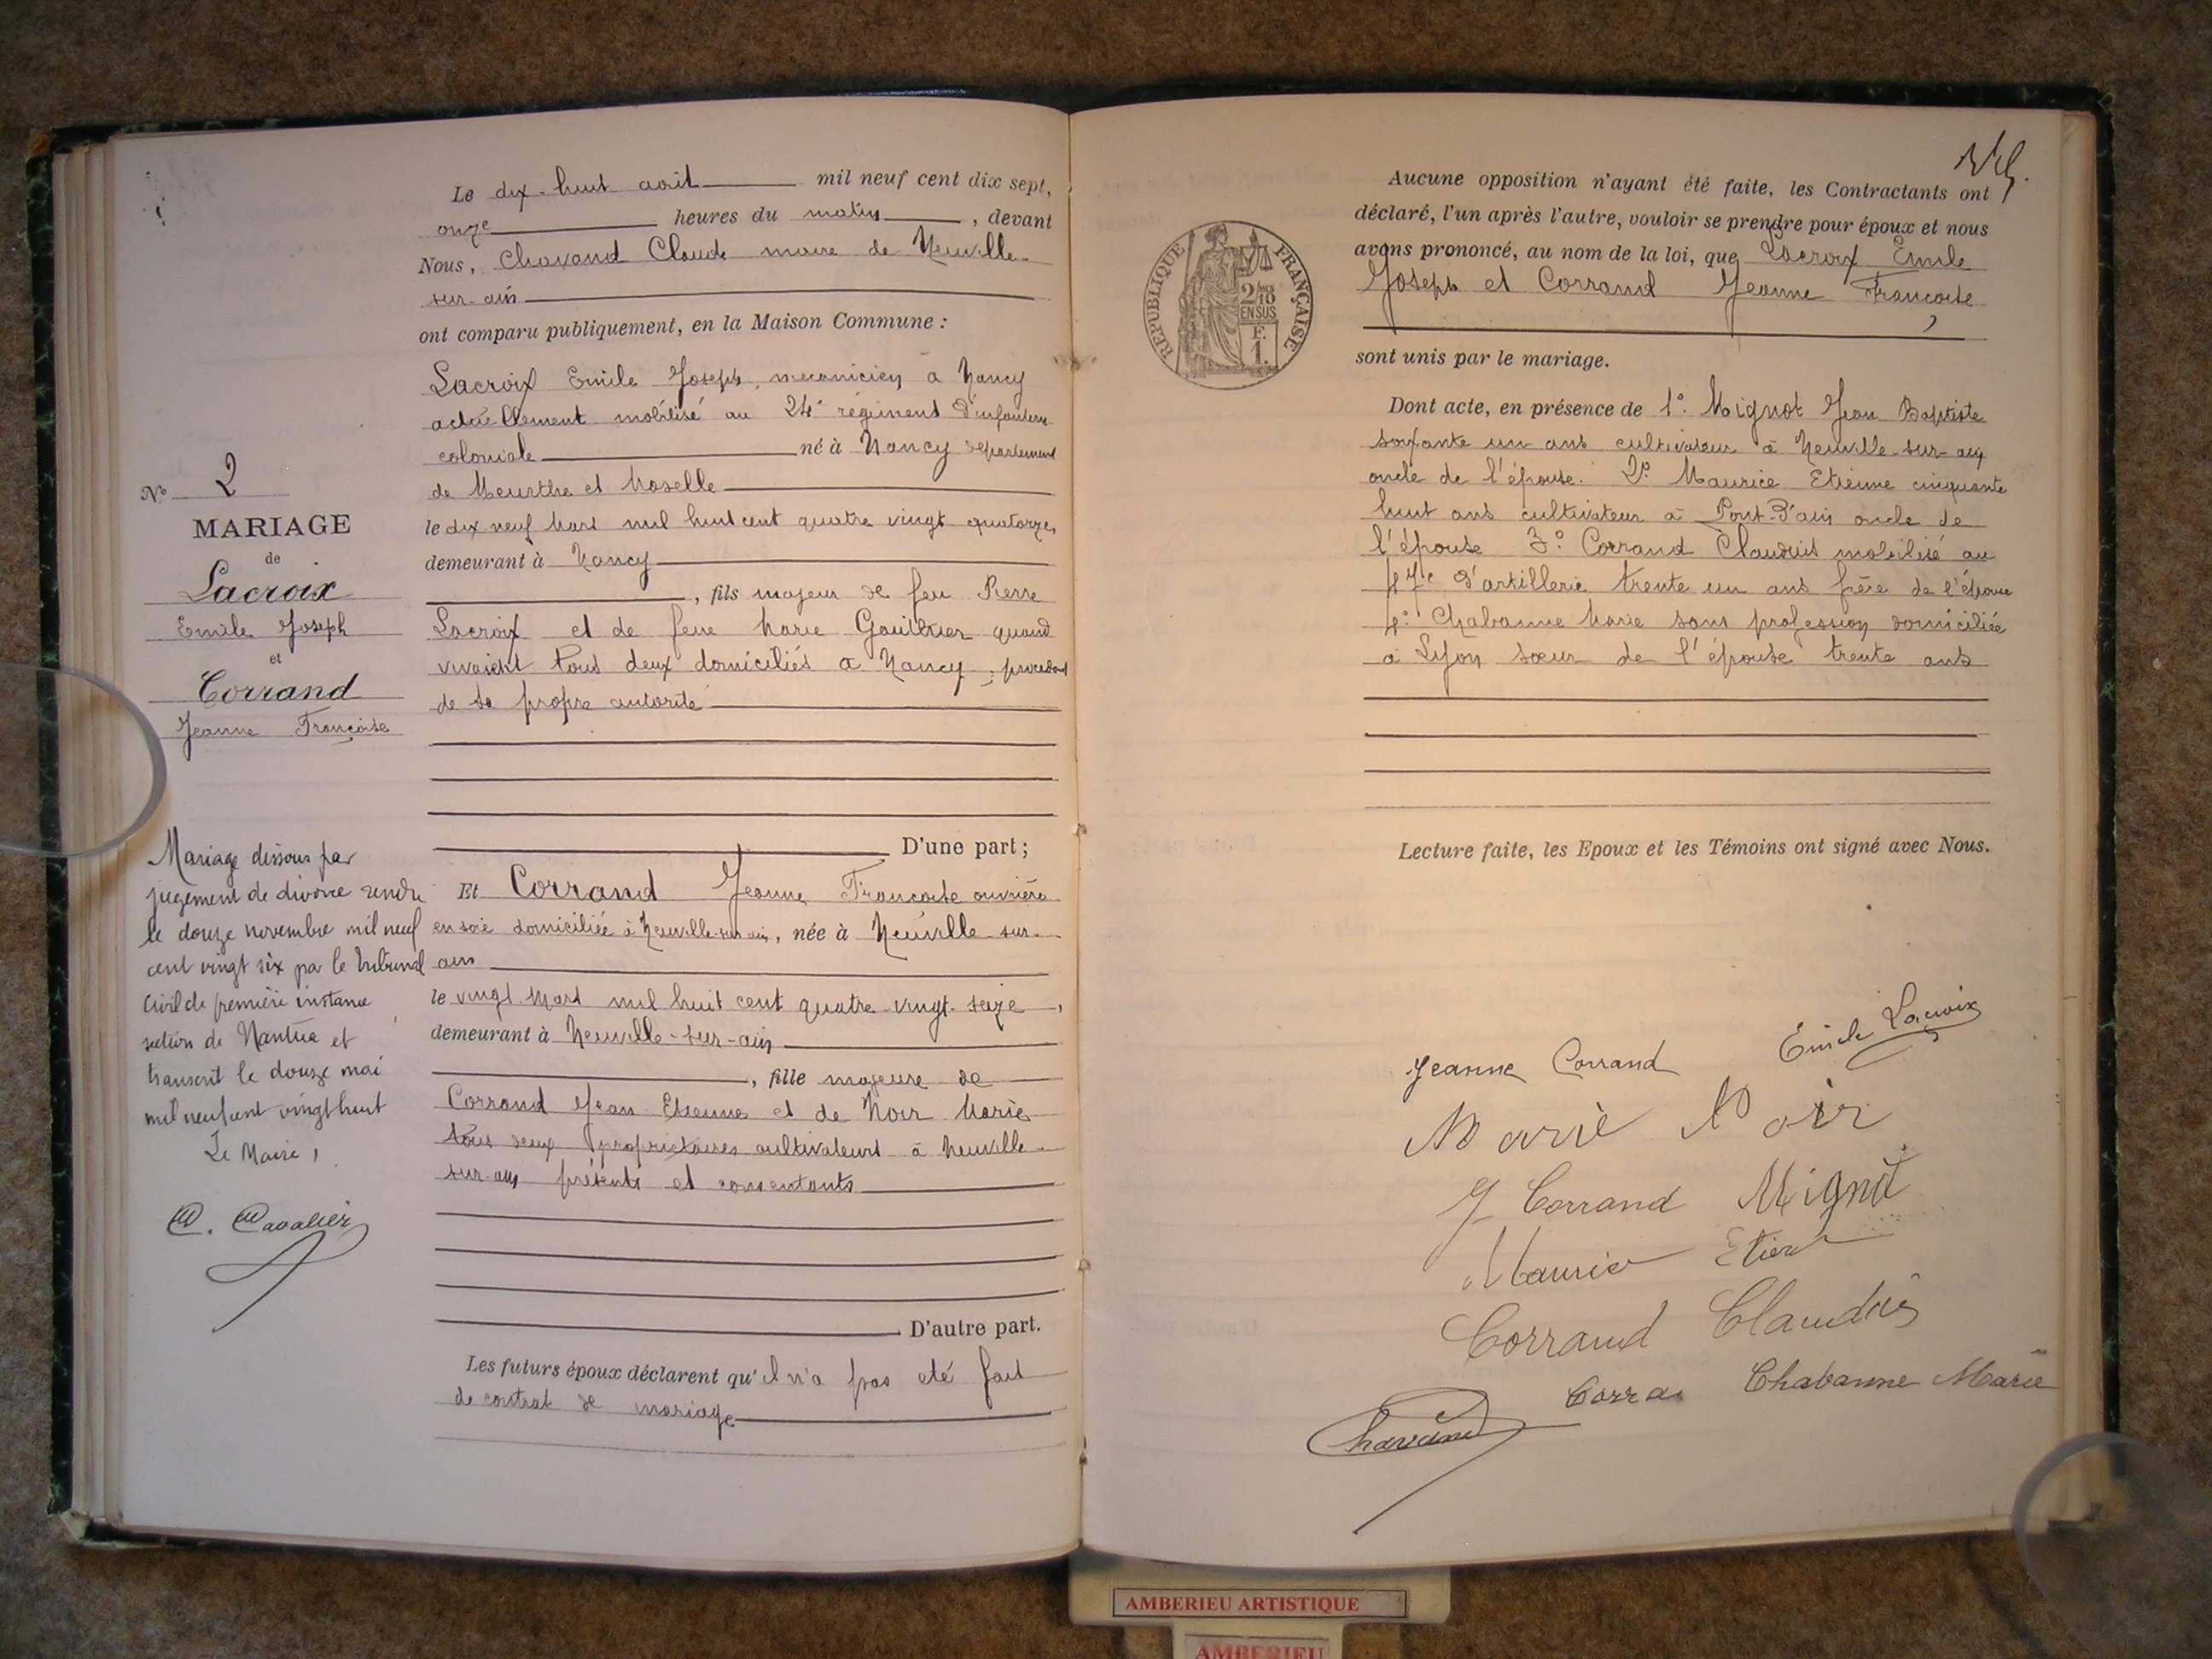 N° 2
MARIAGE
de
Lacroix
Emile Joseph
et
Corrand
Jeanne Françoise
Mariage dissous par
jugement de divorce rendu
le douze novembre mil neuf
cent vingt six par le tribunal
civil de première instance
section de Nantua et
transcrit le douze mai
mil neuf cent vingt huit
Le Maire,
C. Cavalier
Le dix-huit août mil neuf cent dix sept,
onze heures du matin, devant
Nous, Chavand Claude maire de Neuville-
sur-ain
ont comparu publiquement, en la Maison Commune :
Lacroix Emile Joseph, mecanicien à Nancy
actuellement mobilisé au 24e régiment d'infanterie
coloniale né à Nancy departement
de Meurthe et Moselle
le dix neuf Mars mil huit cent quatre vingt quatorze,
demeurant à Nancy
, fils majeur de feu Pierre
Lacroix et de feue Marie Gauthier quand
vivaient tous deux domiciliés a Nancy ; procedant
de sa propre autorité
D'une part ;
Et Corrand Jeanne Francoise ouvrière
en soie domiciliée à Neuville-sur-ain, née à Neuville-sur-
ain
le vingt Mars mil huit cent quatre-vingt-seize,
demeurant à Neuville-sur-ain
, fille majeure de
Corrand Jean Etienne et de Noir Marie
tous deux proprietaires cultivateurs à Neuville-
sur-ain présents et consentants
D'autre part.
Les futurs époux déclarent qu'il n'a pas eté fait
de contrat de mariage
Aucune opposition n'ayant été faite, les Contractants ont
déclaré, l'un après l'autre, vouloir se prendre pour époux et nous
avons prononcé, au nom de la loi, que Lacroix Emile
Joseph et Corrand Jeanne Francoise
sont unis par le mariage.
Dont acte, en présence de 1°. Mignot Jean Baptiste
soixante un ans cultivateur à Neuville-sur-ain
oncle de l'épouse. 2° Maurice Etienne cinquante
huit ans cultivateur à Pont-d'ain oncle de
l'épouse 3° Corrand Claudius mobilisé au
47e d'artillerie trente un ans frère de l'épouse
4° Chabanne Marie sans profession domiciliée
à Lyon sœur de l'épouse trente ans
Lecture faite, les Epoux et les Témoins ont signé avec Nous.
REPUBLIQUE FRANÇAISE
2/10
EN SUS
F.
1.
Jeanne Corrand Émile Lacroix
Marie Noir
J Corrand Mignot
Maurice Etien
Corrand Claudius
Corra Chabanne Marie
Chavand
AMBERIEU ARTISTIQUE
AMBERIEU